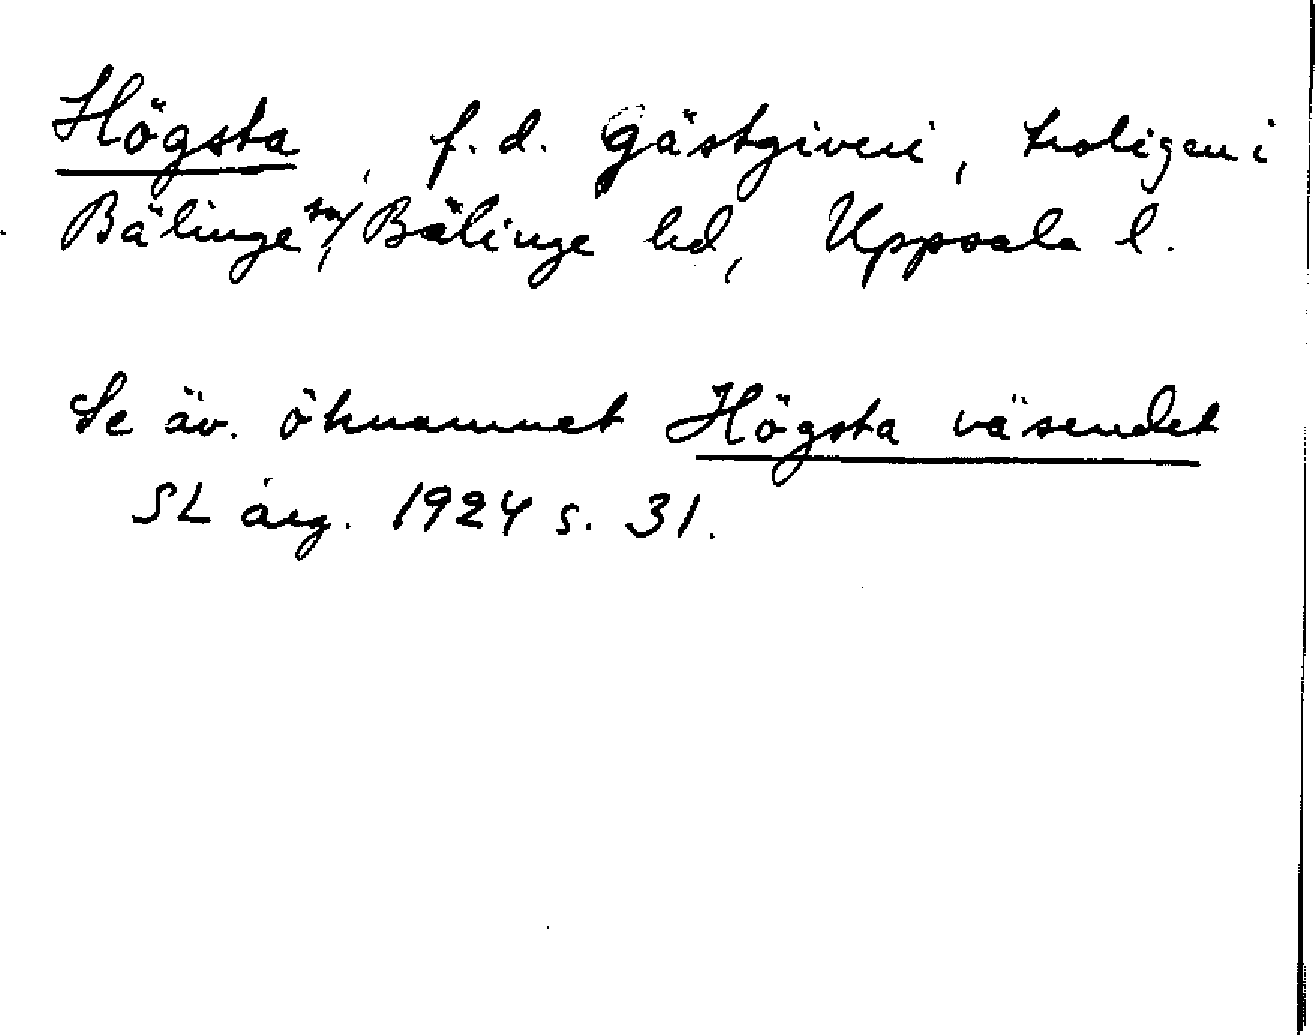 Högsta, f.d. Gästgiveri, troligen i
Bälinge sn, Bälinge hd, Uppsala l.
Se äv. öknamnet Högsta väsendet
SL årg. 1924 s. 31.